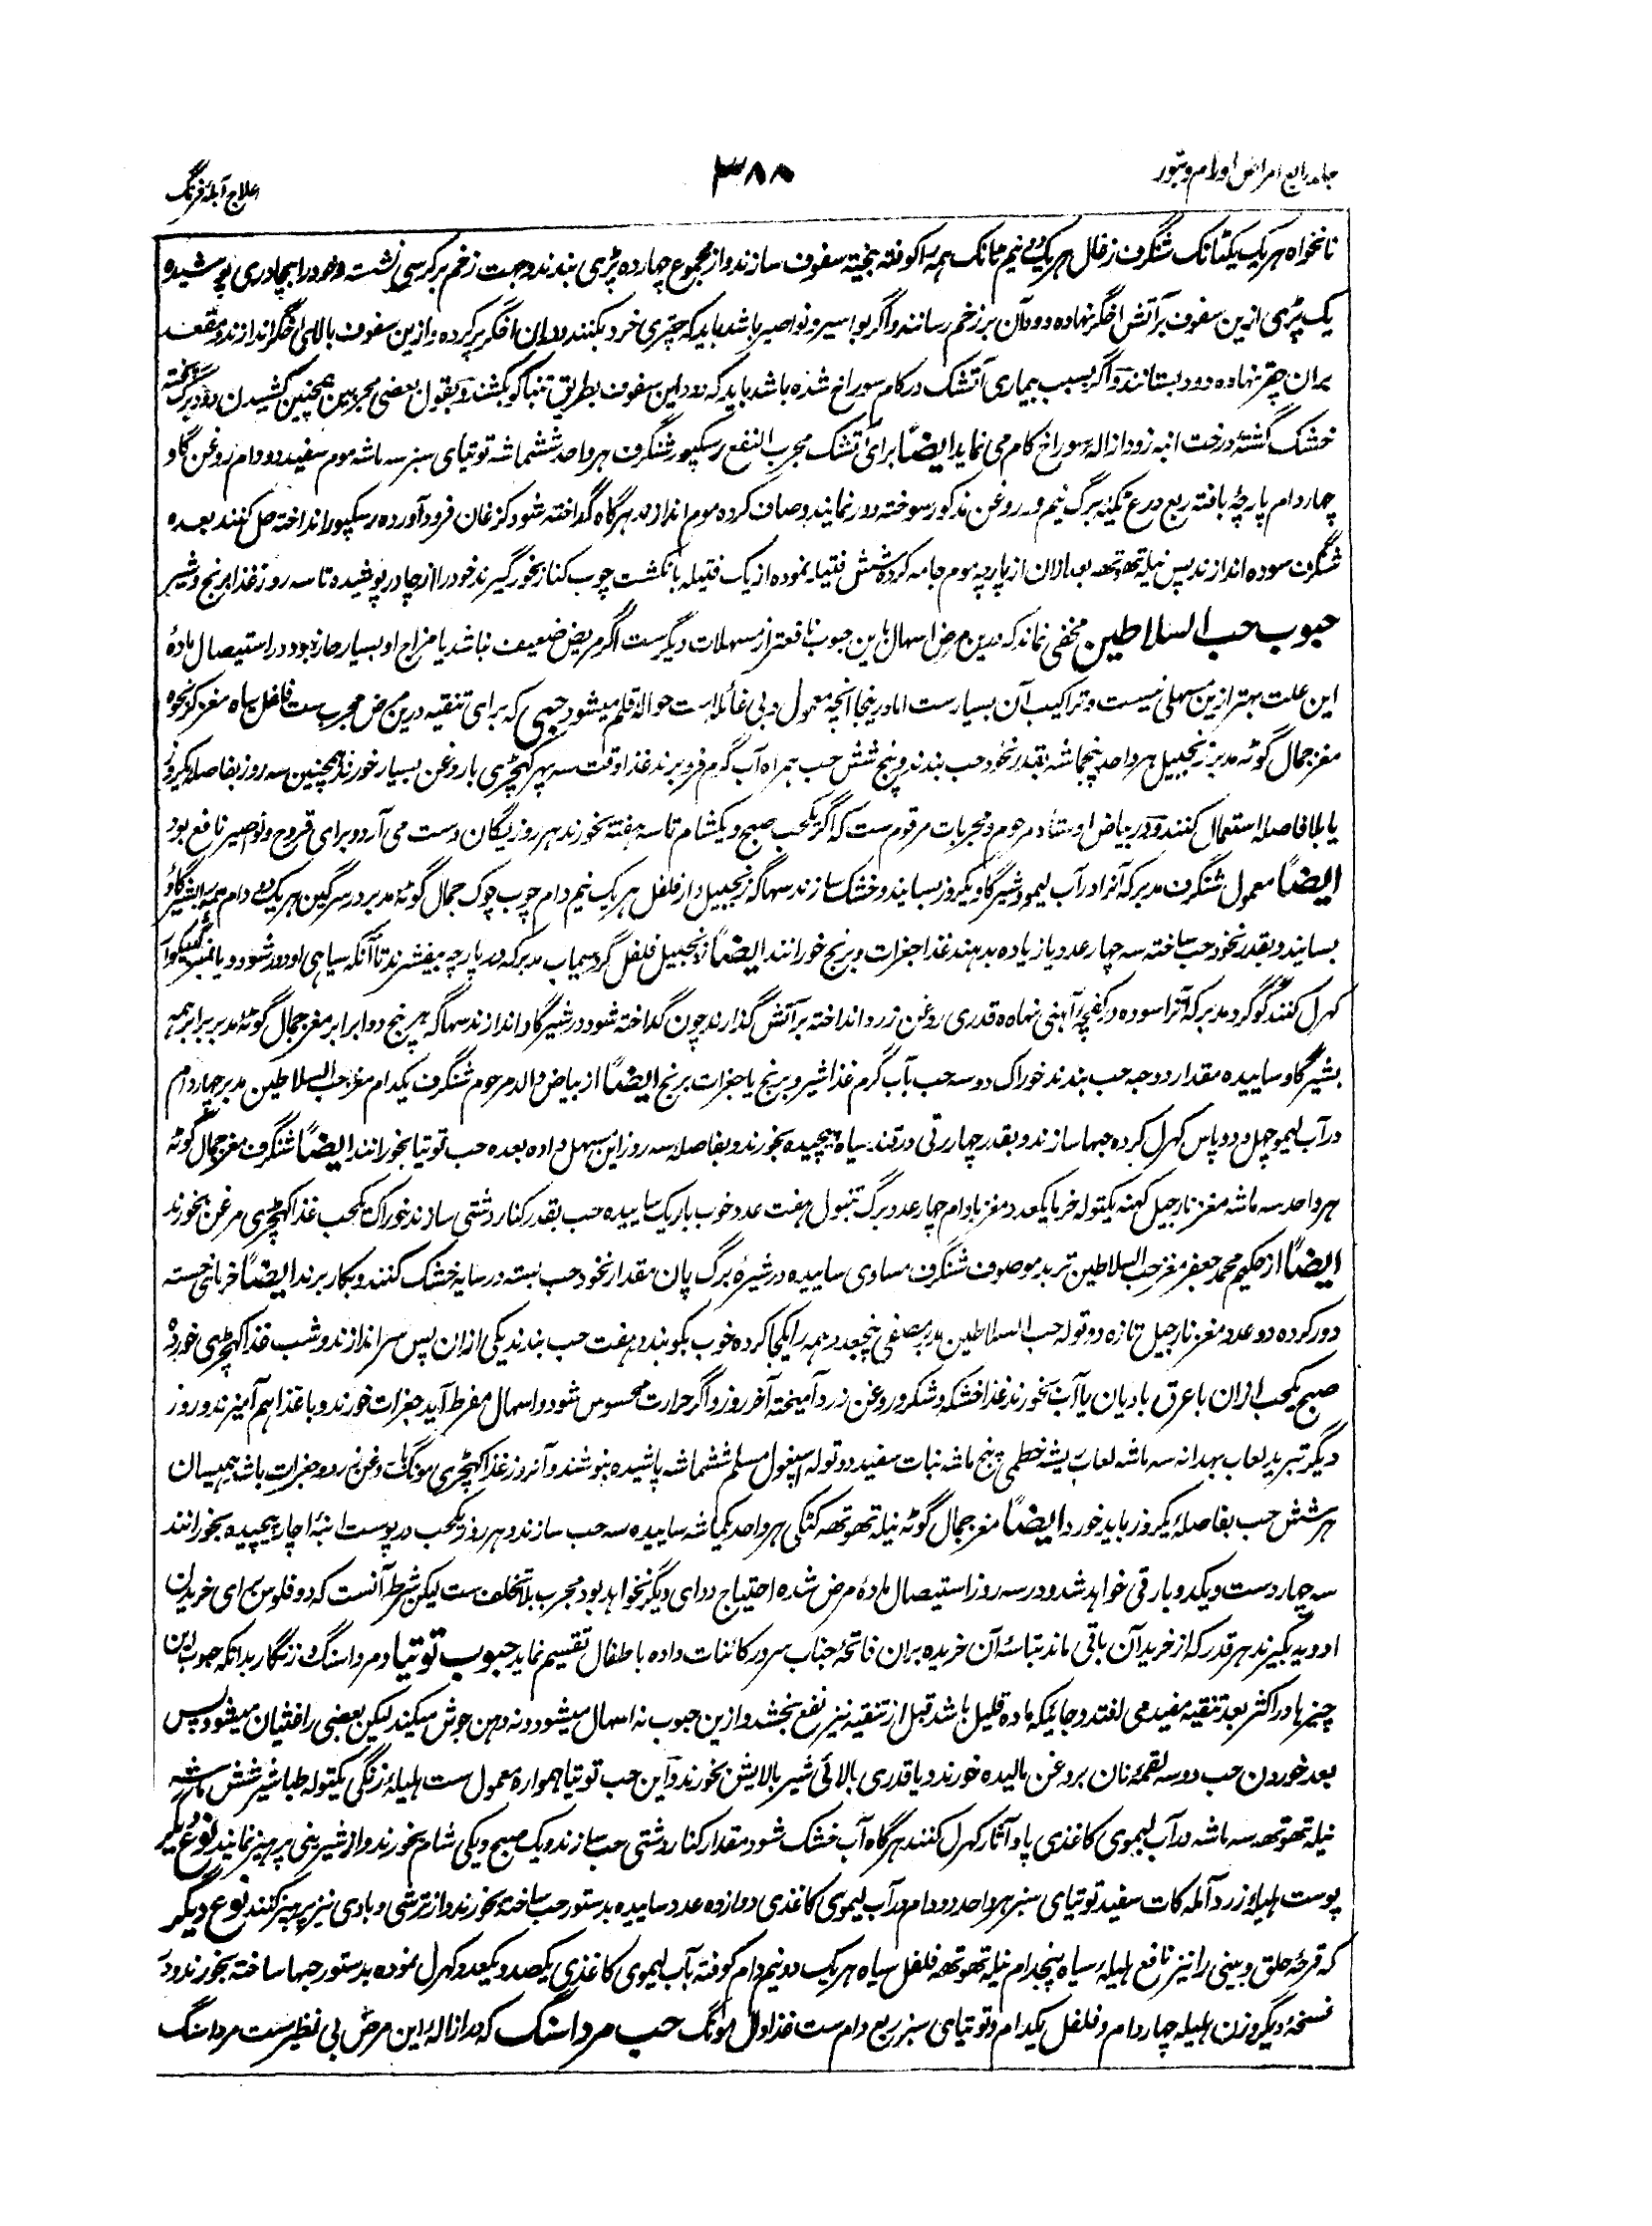 جلد رابع امراض اورام و بثور
۳۸۸
علاج آبلهٔ فرنگ
نانخواه هر یک یکتانک شنگرف زغال هر یک دو نیم تانک همه را کوفته بیخته سفوف سازند و از مجموع چهارده پڑی بندند و جهت زخم بر کرسی نشسته و خود را بچادری پوشیده
یک پڑی ازین سفوف بر آتش اخگر نهاده دود آن بر زخم رسانند و اگر بواسیر و نواصیر باشد باید که چقری خرد بکنند و دران اخگر پر کرده و ازین سفوف بالای اخگر اندازند و مقعد
بران چقر نهاده دود بستانند و اگر بسبب بیماری آتشک در کام سوراخ شده باشد باید که دود این سفوف بطریق تنباکو بکشند و بقول بعضی مجربین همچنین کشیدن دود برگ پخته
خشک گشتهٔ درخت انبه زود ازاله سوراخ کام می نماید ایضاً برای آتشک مجرب النفع رسکپور شنگرف هر واحد ششماشه توتیای سبز سه ماشه موم سفید دو دام روغن گاو
چهار دام پارچهٔ بافته ربع درع نگینه برگ نیم در روغن مذکور سوخته دور نمایند و صاف کرده موم اندازند هرگاه گداخته شود کزغان فرود آورده رسکپور انداخته حل کنند بعده
شنگرف سوده اندازند پس نیله تهوتهه بعد ازان از پارچه موم جامه کرده شش فتیله نموده از یک فتیله بانگشت چوب کنار بخور گیرند خود را از چادر پوشیده تا سه روز غذا برنج و شیر
حبوب حب السلاطین مخفی نماند که درین مرض اسهال باین حبوب نافعتر از مسهلات دیگرست اگر مریض ضعیف نباشد یا مزاج او بسیار حار نبود در استیصال مادهٔ
این علت بهتر ازین مسهلی نیست و تراکیب آن بسیارست اما درینجا آنچه معمول و بی غائله است حواله قلم میشود حبی که برای تنقیه درین مرض مجرب ست فلفل سیاه مغز کرنجوه
مغز جمال گوٹه مدبر زنجبیل هر واحد پنجماشه بقدر نخود حب بندند و پنج شش حب همراه آب گرم فرو برند غذا وقت سه پهر کهچڑی با روغن بسیار خورند همچنین سه روز بفاصلهٔ یکروز
یا بلافاصله استعمال کنند و در بیاض استاد مرحوم و مجربات مرقوم ست که اگر یکحب صبح و یک شام تا سه هفته بخورند هر روز یگان دست می آرد و برای قروح و نواصیر نافع بود
ایضاً معمول شنگرف مدبر که آنرا در آب لیمو و شیر گاو یکروز بسایند و خشک سازند سهاگه زنجبیل دار فلفل هر یک نیم دام چوب چوک جمال گوٹه مدبر در سرگین هر یک دو دام همه را بشیر گاو
بسایند و بقدر نخود حب ساخته سه چهار عدد یا زیاده بدهند غذا جغرات و برنج خورانند ایضاً زنجبیل فلفل گرد سیماب مدبر که در پارچه بیفشرند تا آنکه سیاهی او دور شود و با
کهرل کنند گوگرد مدبر که آنرا سوده در کفچهٔ آهنی نهاده قدری روغن زرد انداخته بر آتش گذارند چون گداخته شود در شیر گاو اندازند سهاگه هر پنج دوا برابر مغز جمال گوٹه مدبر برابر همه
بشیر گاو ساییده مقدار دو حبه حب بندند خوراک دو سه حب بآب گرم غذا شیر و برنج یا جغرات برنج ایضاً از بیاض والد مرحوم شنگرف یکدام مغز حب السلاطین مدبر چهار دام
در آب لیمو چهل و دو پاس کهرل کرده حبها سازند و بقدر چهار رتی در قند سیاه پیچیده بخورند و بفاصلهٔ سه روز این مسهل داده بعده حب توتیا بخورانند ایضاً شنگرف مغز جمال گوٹه
هر واحد سه ماشه مغز نارجیل کهنه یکتوله خرما یکعدد مغز بادام چهار عدد برگ تنبول هفت عدد خوب باریک ساییده حب بقدر کنار دشتی سازند خوراک یکحب غذا کهچڑی مرغن بخورند
ایضاً از حکیم محمد جعفر مغز حب السلاطین تربد موصوف شنگرف مساوی ساییده در شیرهٔ برگ پان مقدار نخود حب بسته در سایه خشک کنند و بکار برند ایضاً خرمائی خسته
دور کرده دو عدد مغز نارجیل تازه دو توله حب السلاطین مدبر مصفی پنجعدد همه را یکجا کرده خوب بکوبند و هفت حب بندند یکی ازان پس سر اندازند و شب غذا کهچڑی خورده
صبح یکحب ازان با عرق بادیان یا آب بخورند غذا خشکه و شکر و روغن زرد آمیخته آخر روز و اگر حرارت محسوس شود و اسهال مفرط آید جغرات خورند و با غذا هم آمیزند و روز
دیگر تبرید لعاب بهدانه سه ماشه لعاب ریشه خطمی پنج ماشه نبات سفید دو توله اسپغول مسلم ششماشه پاشیده بنوشند و آنروز غذا کهچڑی مونگ روغن زرد و جغرات باشد بهمیسان
هر شش حب بفاصلهٔ یکروز باید خورد ایضاً مغز جمال گوٹه نیله تهوتهه کٹکی هر واحد یکماشه ساییده سه حب سازند و هر روز یکحب در پوست انبهٔ اچار پیچیده بخورانند
سه چهار دست و یکدو بار قی خواهد شد و در سه روز استیصال مادهٔ مرض شده احتیاج دوای دیگر نخواهد بود مجرب بلاتخلف ست لیکن شرط آنست که دو فلوس برای خریدن
ادویه بگیرند هر قدر که از خرید آن باقی ماند بتاسهٔ آن خریده بران فاتحهٔ جناب سرور کائنات داده باطفال تقسیم نماید حبوب توتیا و مرداسنگ و زنگار بدانکه حبوب این
چیزها در اکثر بعد تنقیه مفید می افتد و جائیکه ماده قلیل باشد قبل از تنقیه نیز نفع بخشد و ازین حبوب نه اسهال میشود و نه دهن جوش میکند لیکن بعضی را غثیان میشود پس
بعد خوردن حب دو سه لقمهٔ نان بروغن مالیده خورند و یا قدری بالائی شیر بالایش بخورند و این حب توتیا همواره معمول ست هلیلهٔ زنگی یکتوله طباشیر شش ماشه
نیله تهوتهه سه ماشه در آب لیموی کاغذی پاو آثار کهرل کنند هرگاه آب خشک شود مقدار کنار دشتی حب سازند و یک صبح و یکی شام بخورند و از شیرینی پرهیز نمایند نوع دیگر
پوست هلیلهٔ زرد آمله کات سفید توتیای سبز هر واحد دو دام در آب لیموی کاغذی دوازده عدد ساییده بدستور حب ساخته بخورند و از ترشی و بادی نیز پرهیز کنند نوع دیگر
که قرحهٔ حلق و بینی را نیز نافع هلیلهٔ سیاه پنجدام نیله تهوتهه فلفل سیاه هر یک دو نیم دام کوفته بآب لیموی کاغذی یکصد و یکعدد کهرل نموده بدستور حبها ساخته بخورند و در
نسخهٔ دیگر وزن هلیله چهار دام و فلفل یکدام و توتیای سبز ربع دام ست غذا دال مونگ حب مرداسنگ که در ازالهٔ این مرض بی نظیرست مرداسنگ